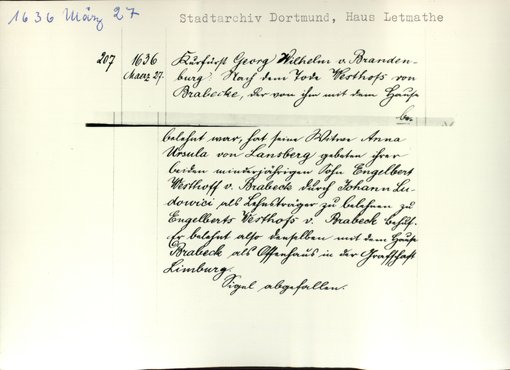 1636 März 27
Stadtarchiv Dortmund, Haus Letmathe
207 1636 Kurfürst Georg Wilhelm v. Branden-
Maerz 27. burg. Nach dem Tode Westhofs von
Brabecke, der von ihm mit dem Hause
be-
belehnt war, hat seine Witwe Anna
Ursula von Lansberg gebeten ihrer
beiden minderjährigen Sohn Engelbert
Westhoff v. Brabeck durch Johann Lu-
dowici als Lehnsträger zu belehnen zu
Engelberts Westhofs v. Brabeck Behuf.
Er belehnt also denselben mit dem Hause
Brabeck als Offenhaus in der Grafschaft
Limburg.
Sigel abgefallen.